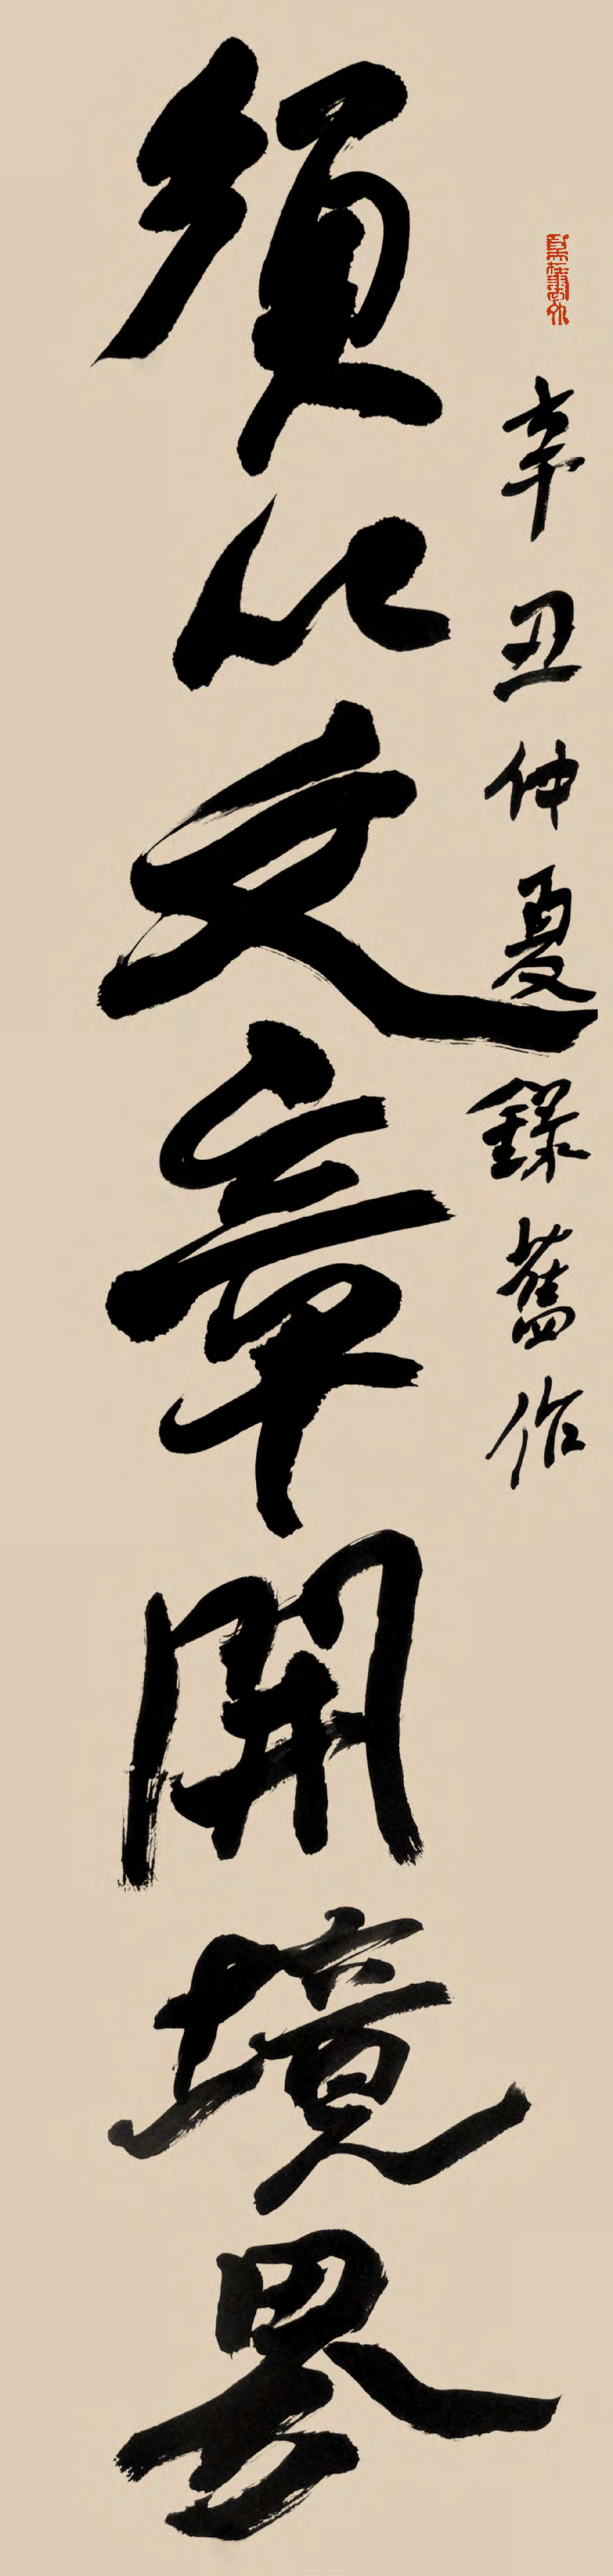 辛丑仲夏錄舊作
須以文章開境界